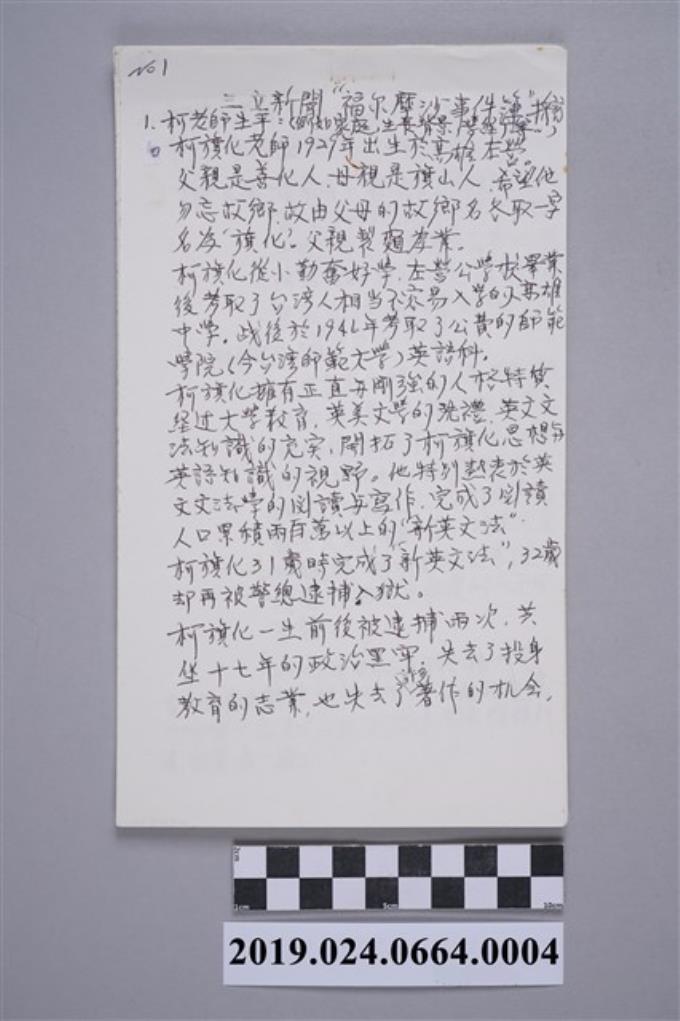 No 1
三立新聞“福尔摩沙事件簿”
1. 柯老師生平:(例如家庭、生長背景、學經歷等…)
柯旗化老師1929年出生於高雄左營。
父親是善化人、母親是旗山人,希望他
勿忘故鄉,故由父母的故鄉名各取一字
名為“旗化”。父親製麵為業。
柯旗化從小勤奮好學,左營公學校畢業
後考取了台湾人相当不容易入學的高雄
中学。战後於1946年考取了公費的師範
學院(今台湾師範大學)英語科。
柯旗化擁有正直与剛強的人格特質
經过大學教育,英美文學的洗禮,英文文
法知識的充实,開拓了柯旗化思想与
英語知識的視野。他特別熱衷於英
文文法學的閱讀与寫作,完成了閱讀
人口累積兩百萬以上的“新英文法”.
柯旗化31歲時完成了“新英文法”,32歲
却再被警總逮捕入獄。
柯旗化一生前後被逮捕兩次,共
坐十七年的政治黑牢,失去了投身
教育的志業,也失去了著作的机会.
2cm
1cm
5cm
10cm
2019.024.0664.0004